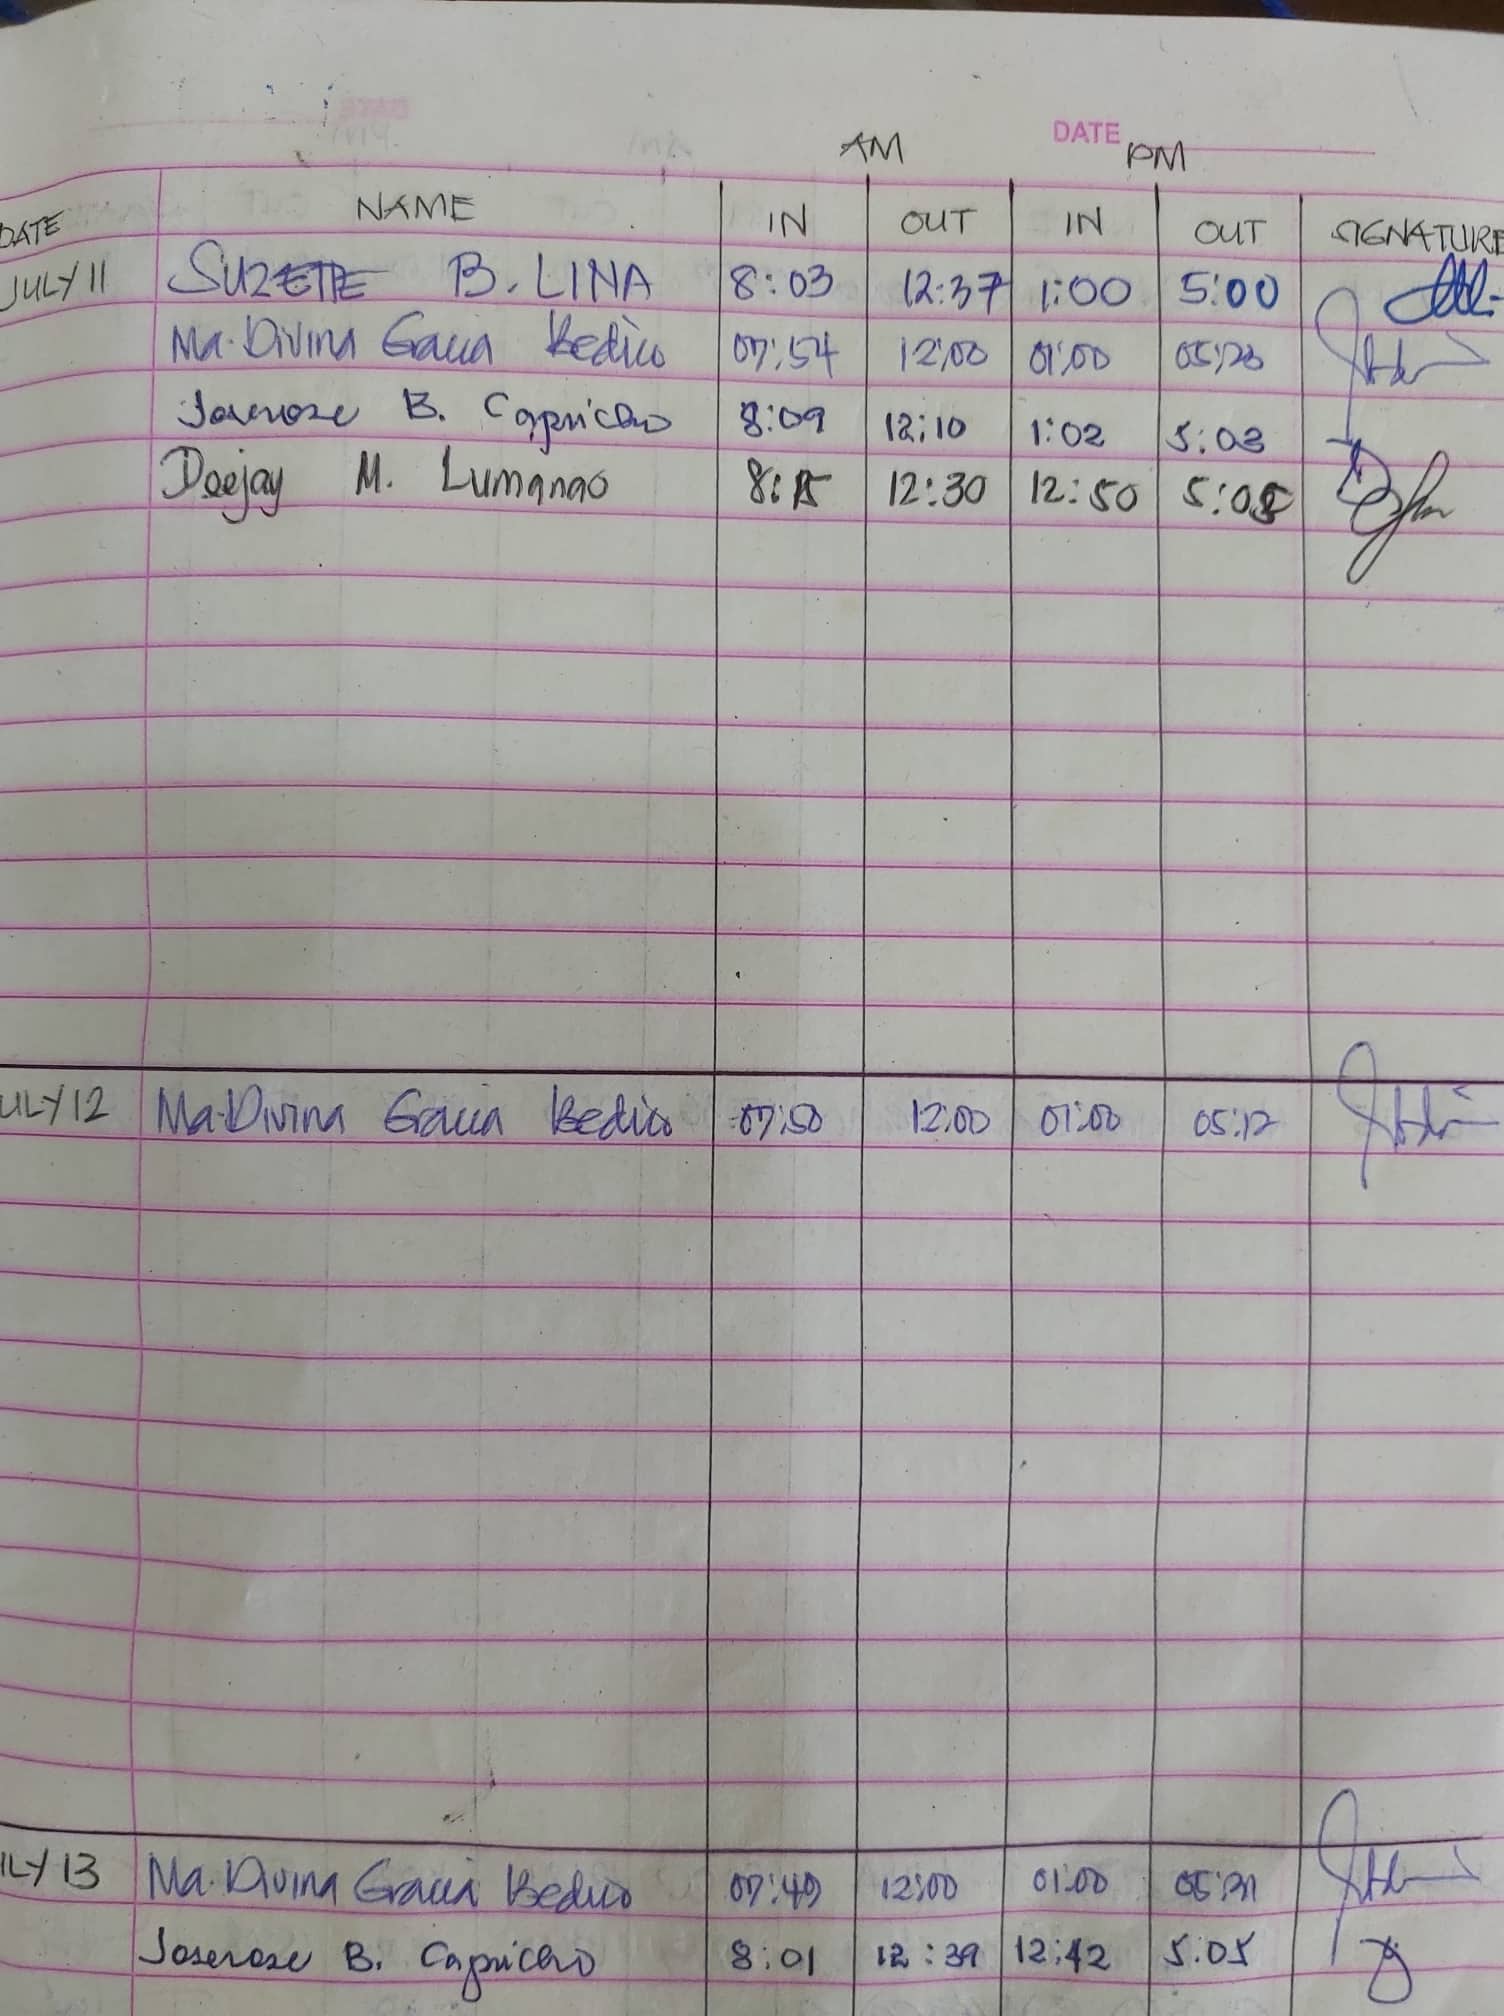 DATE
AM PM
DATE NAME IN OUT IN OUT SIGNATURE
JULY 11 SUZETTE B. LINA 8:03 12:37 1:00 5:00
Ma. Divina Gracia Bedico 07:54 12:00 01:00 05:23
Joserose B. Capricho 8:09 12:10 1:02 5:03
Deejay M. Lumanao 8:15 12:30 12:50 5:05
ULY 12 Ma. Divina Gracia Bedico 07:50 12:00 01:00 05:12
ILY 13 Ma. Divina Gracia Bedico 07:49 12:00 01:00 05:31
Joserose B. Capricho 8:01 12:39 12:42 5:05